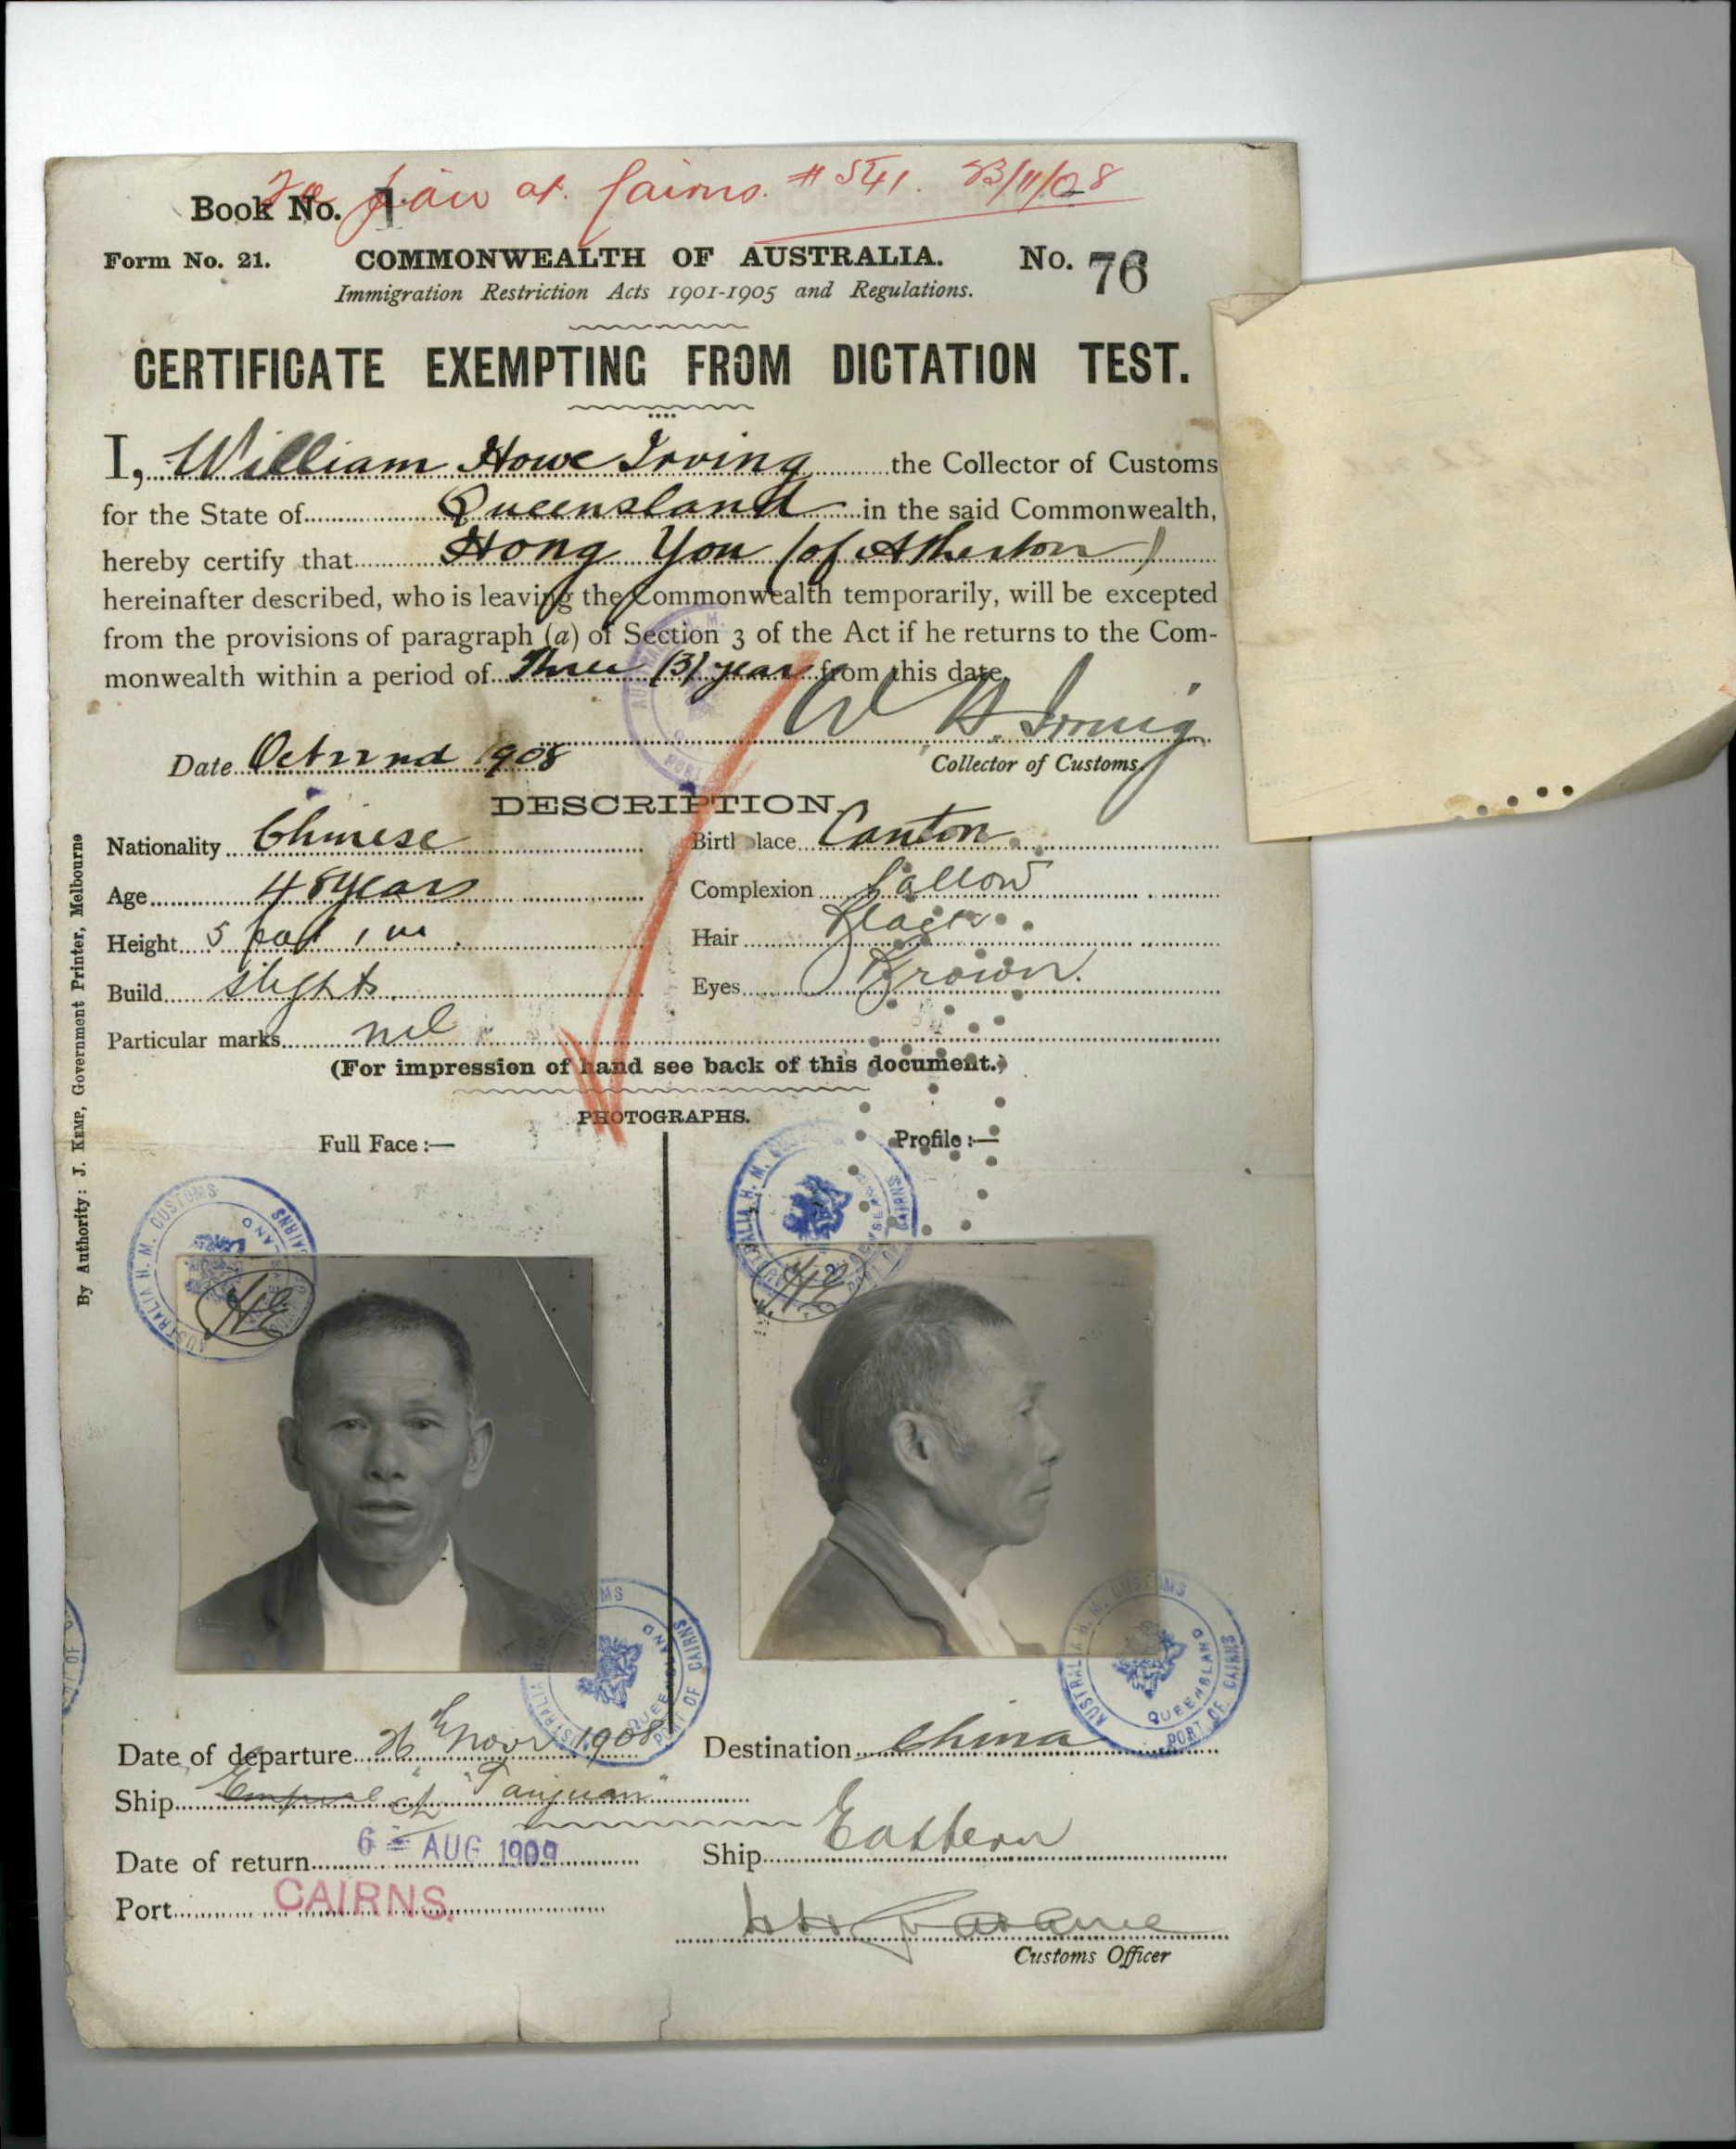 £1 paid at Cairns. # 541. 23/11/08
Book No. 1
Form No. 21. COMMONWEALTH OF AUSTRALIA. No. 76
Immigration Restriction Acts 1901-1905 and Regulations.
CERTIFICATE EXEMPTING FROM DICTATION TEST.
I, William Howe Irving the Collector of Customs
for the State of Queensland in the said Commonwealth,
hereby certify that Hong You (of Atherton)
hereinafter described, who is leaving the Commonwealth temporarily, will be excepted
from the provisions of paragraph (a) of Section 3 of the Act if he returns to the Com-
monwealth within a period of Three (3) years from this date.
W H. Irving
Date Oct 22nd 1908 Collector of Customs.
DESCRIPTION.
Nationality Chinese Birthplace Canton
Age 48 years Complexion Sallow
Height 5 foot 1 in. Hair Black
Build slight Eyes Brown.
Particular marks nil
(For impression of hand see back of this document.)
PHOTOGRAPHS.
Full Face :— Profile :—
AUSTRALIA H. M. CUSTOMS QUEENSLAND PORT OF CAIRNS
AUSTRALIA H. M. CUSTOMS QUEENSLAND PORT OF CAIRNS
AUSTRALIA H. M. CUSTOMS QUEENSLAND PORT OF CAIRNS
AUSTRALIA H. M. CUSTOMS QUEENSLAND PORT OF CAIRNS
Date of departure 26th Novr 1908 Destination China
Ship Empire "Taiyuan"
Date of return 6 - AUG 1909 Ship Eastern
Port CAIRNS.
Customs Officer
By Authority: J. KEMP, Government Printer, Melbourne